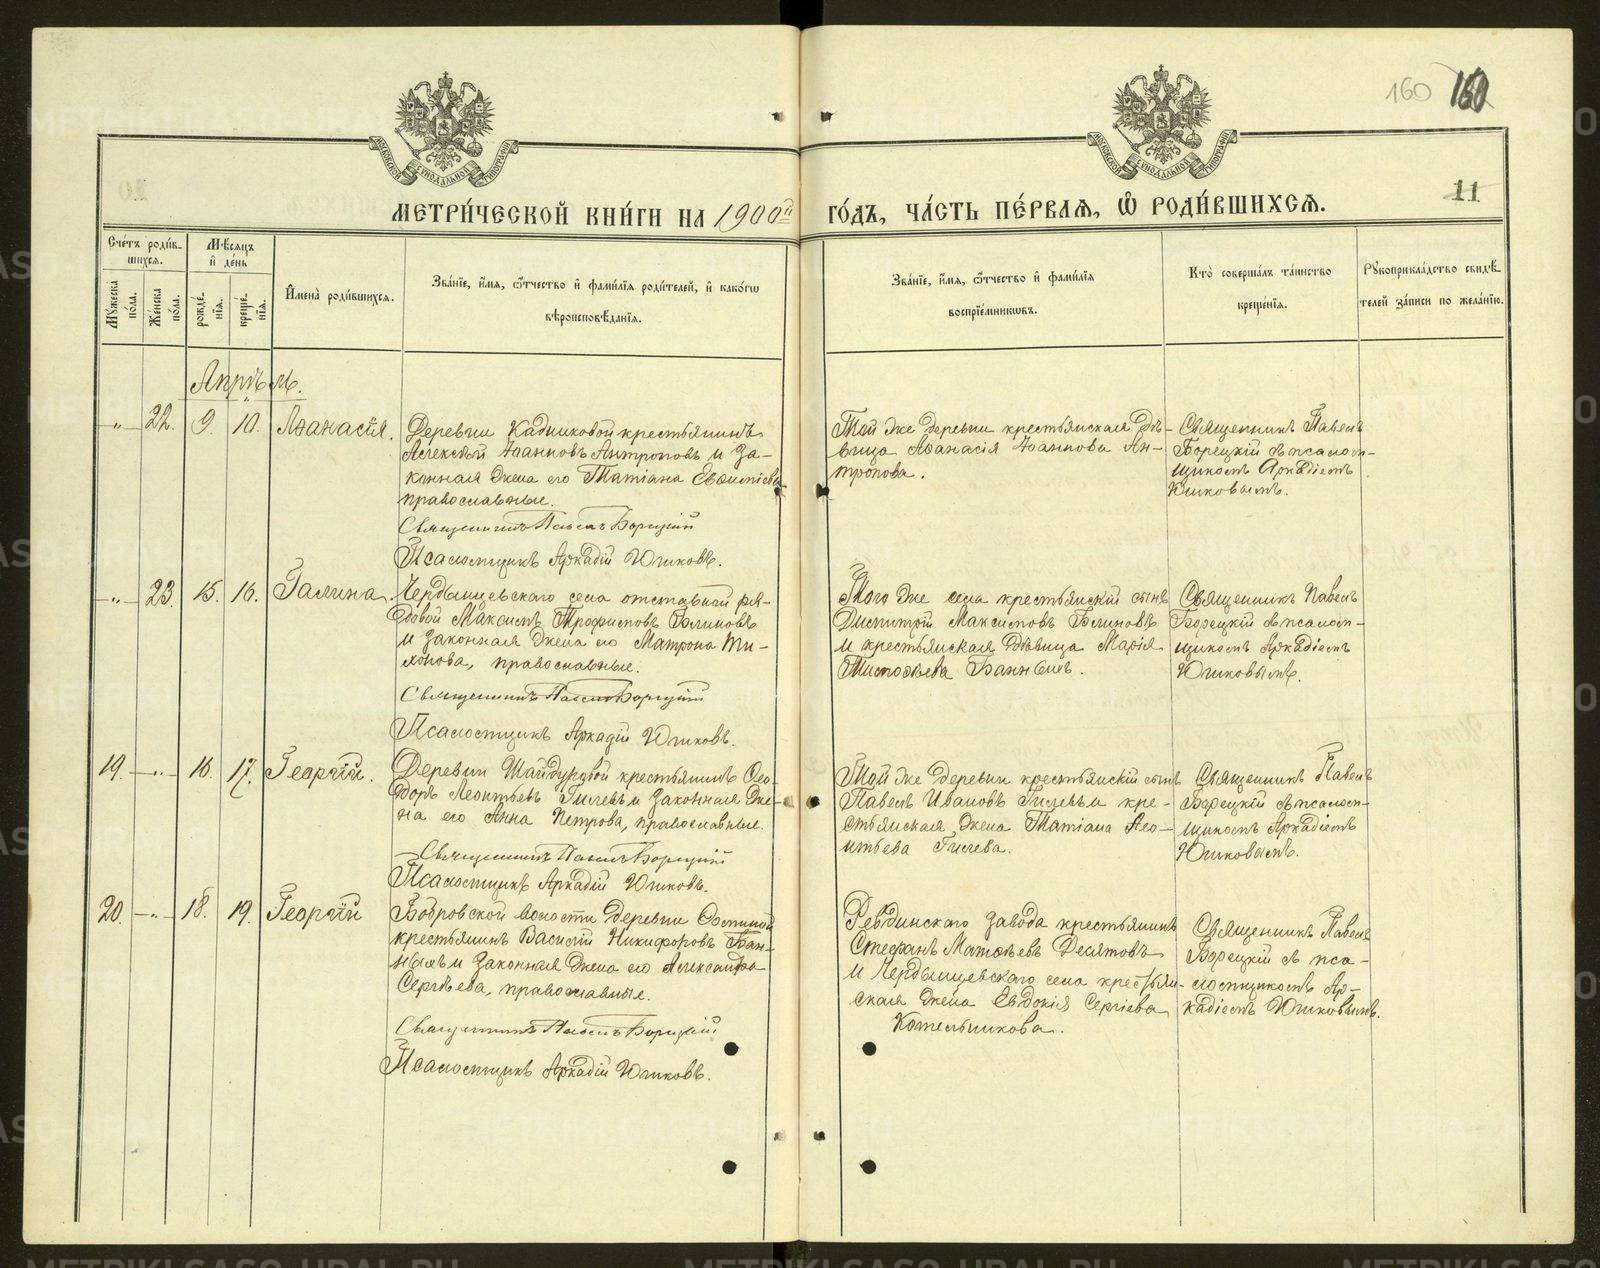 160 160
МОСКОВСКОЙ СѴНОДАЛЬНОЙ ТИПОГРАФІИ
МОСКОВСКОЙ СѴНОДАЛЬНОЙ ТИПОГРАФІИ
11
МЕТРИ́ЧЕСКОЙ КНИ́ГИ НА 1900й ГО́ДЪ, ЧА́СТЬ ПЕ́РВАѦ, Ѽ РОДИ́ВШИХСѦ.
Сче́тъ роди́в-
шихсѧ.
Мꙋ́жеска по́ла.
Же́нска по́ла.
Мѣ́сѧцъ и҆ де́нь
рожде́-
нїѧ.
креще́-
нїѧ.
И҆мена̀ роди́вшихсѧ.
Зва́нїе, и҆́мѧ, ѻ҆́тчество и҆ фами́лїѧ роди́телей, и҆ како́гѡ
вѣроисповѣ́данїѧ.
Зва́нїе, и҆́мѧ, ѻ҆́тчество и҆ фами́лїѧ
воспрїе́мникѡвъ.
Кто̀ соверша́лъ та́инство
креще́нїѧ.
Рꙋкоприкла́дство свидѣ́-
телей за́писи по жела́нїю.
Апрѣль.
„ 22. 9. 10. Аѳанасія.
Деревни Кадниковой крестьянинъ
Алексѣй Іоанновъ Антроповъ и за-
конная жена его Татіана Евсигніева
православные.
Священникъ Павелъ Борецкій
Псаломщикъ Аркадій Юшковъ.
Той же деревни крестьянская дѣ-
вица Аѳанасія Іоаннова Ан-
тропова.
Священникъ Павелъ
Борецкій съ псалом-
щикомъ Аркадіемъ
Юшковымъ.
„ 23. 15. 16. Галина.
Чердынцевскаго села отставной ря-
довой Максимъ Трофимовъ Блиновъ
и законная жена его Матрона Ти-
хонова, православные.
Священникъ Павелъ Борецкій
Псаломщикъ Аркадій Юшковъ.
Того же села крестьянскій сынъ
Димитрій Максимовъ Блиновъ
и крестьянская дѣвица Марія
Тимоѳеева Банныхъ.
Священникъ Павелъ
Борецкій съ псалом-
щикомъ Аркадіемъ
Юшковымъ.
19. „ 16. 17. Георгій.
Деревни Шайдуровой крестьянинъ Ѳео-
доръ Леонтьевъ Гилевъ и законная же-
на его Анна Петрова, православные.
Священникъ Павелъ Борецкій
Псаломщикъ Аркадій Юшковъ.
Той же деревни крестьянскій сынъ
Павелъ Ивановъ Гилевъ и кре-
стьянская жена Татіана Лео-
нтьева Гилева.
Священникъ Павелъ
Борецкій съ псалом-
щикомъ Аркадіемъ
Юшковымъ.
20. „ 18. 19. Георгій
Бобровской волости деревни
крестьянинъ Василій Никифоровъ Бан-
ныхъ и законная жена его Александра
Сергѣева, православные.
Священникъ Павелъ Борецкій
Псаломщикъ Аркадій Юшковъ.
Ревдинскаго завода крестьянинъ
Стефанъ Матѳѣевъ Десятовъ
и Чердынцевскаго села крестьян-
ская жена Евдокія Сергіева
Котельникова.
Священникъ Павелъ
Борецкій съ пса-
ломщикомъ Ар-
кадіемъ Юшковымъ.
METRIKI.GASO-URAL.RU